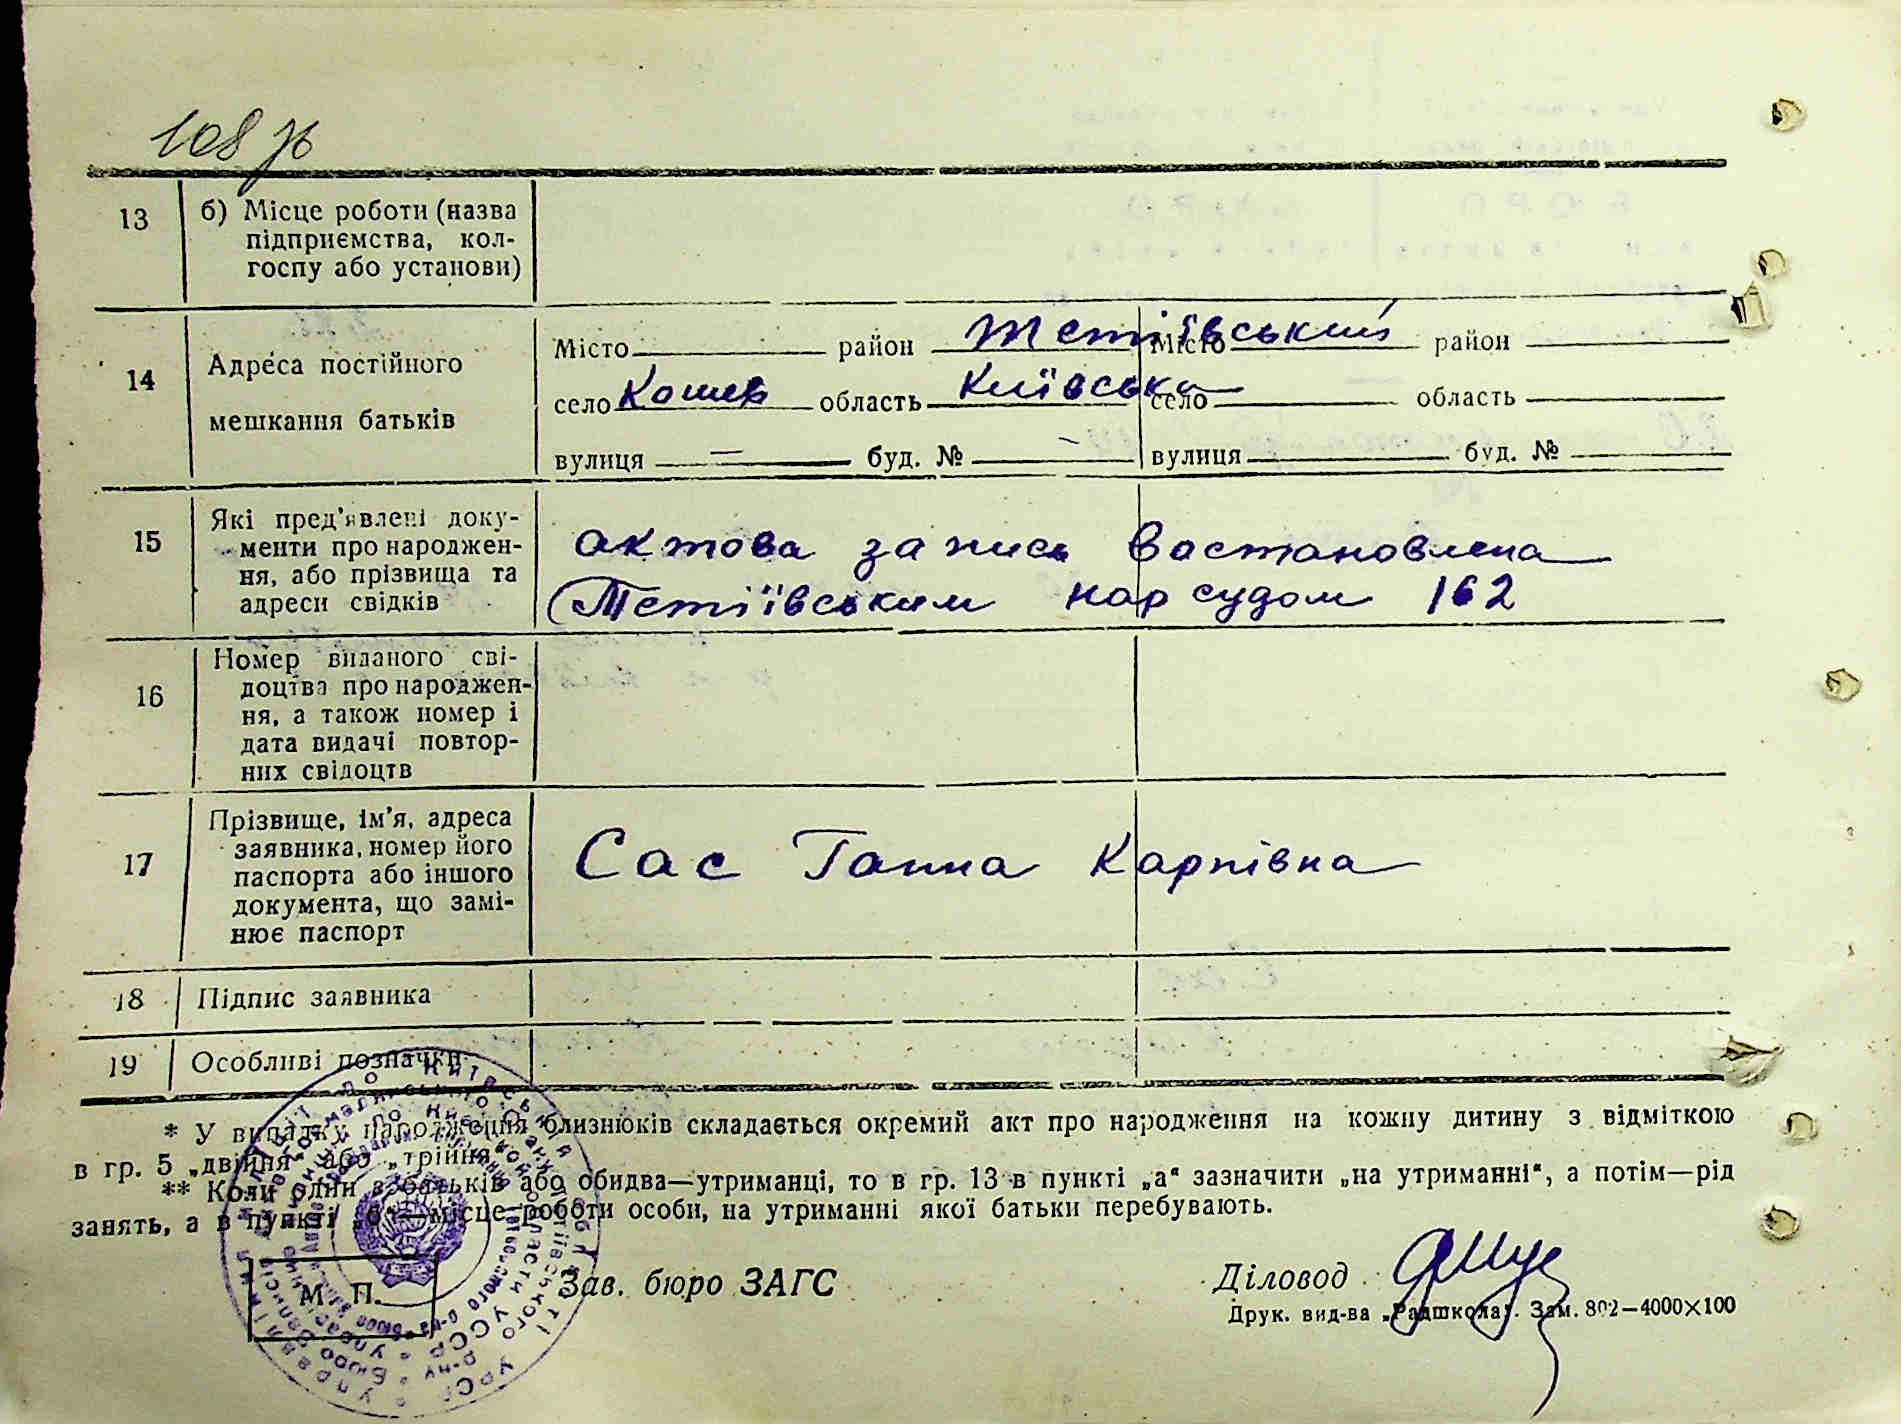 108 зв
13 б) Місце роботи (назва
підприємства, кол-
госпу або установи)
14 Адреса постійного
мешкання батьків
Місто район Тетіївський Місто район
село Кошів область Київська село область
вулиця — буд. № — вулиця буд. №
15 Які пред'явлені доку-
менти про народжен-
ня, або прізвища та
адреси свідків
актова запись востановлена
Тетіївським нар судом 162
16 Номер виданого сві-
доцтва про народжен-
ня, а також номер і
дата видачі повтор-
них свідоцтв
17 Прізвище, ім'я, адреса
заявника, номер його
паспорта або іншого
документа, що замі-
нює паспорт
Сас Ганна Карпівна
18 Підпис заявника
19 Особливі позначки
* У випадку народження близнюків складається окремий акт про народження на кожну дитину з відміткою
в гр. 5 „двійня“ або „трійня“.
** Коли один з батьків або обидва—утриманці, то в гр. 13 в пункті „а“ зазначити „на утриманні“, а потім—рід
занять, а в пункті „б“—місце роботи особи, на утриманні якої батьки перебувають.
М. П. Зав. бюро ЗАГС Діловод
Друк. вид-ва „Радшкола“. Зам. 802—4000×100